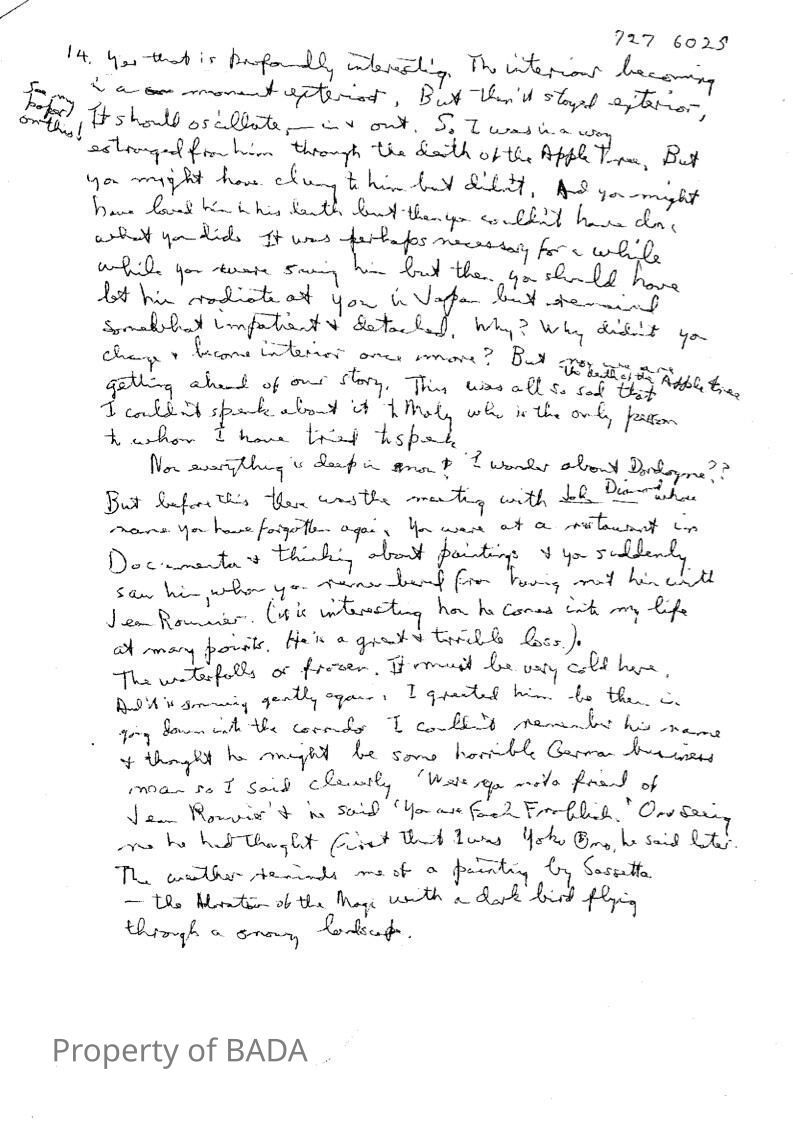 727 6025
14. Yes that is profoundly interesting. The interior becoming
in a moment exterior. But then it stayed exterior,
See my paper on this!
It should oscillate, — in & out. So I was in a way
estranged from him through the death of the Apple Tree. But
you might have clung to him but didn't. And you might
have loved him in his death but then you couldn't have done
what you did. It was perhaps necessary for a while
while you were saving him but then you should have
let him radiate at you in Japan but remained
somewhat impatient & detached. Why? Why didn't you
change & become interior once more? But now we are
getting ahead of our story. This was all so sad that
the death of the Apple tree
I couldn't speak about it to Molly who is the only person
to whom I have tried to speak
Now everything is deep in snow & I wonder about Dordogne??
But before this there was the meeting with Diamond whose
name you have forgotten again. You were at a restaurant in
Documenta & thinking about paintings & you suddenly
saw him, whom you remembered from having met him with
Jean Rouvier. (it is interesting how he comes into my life
at many points. He is a great & terrible loss.).
The waterfalls are frozen. It must be very cold here.
And it is snowing gently again. I greeted him he then in
going down into the corridor I couldn't remember his name
& thought he might be some horrible German business
man so I said cleverly 'Were you not a friend of
Jean Rouvier' & he said 'You are Froehlich.' On seeing
me he had thought first that I was Yoko Ono, he said later.
The weather reminds me of a painting by Sassetta
— the Adoration of the Magi with a dark bird flying
through a snowy landscape.
Property of BADA